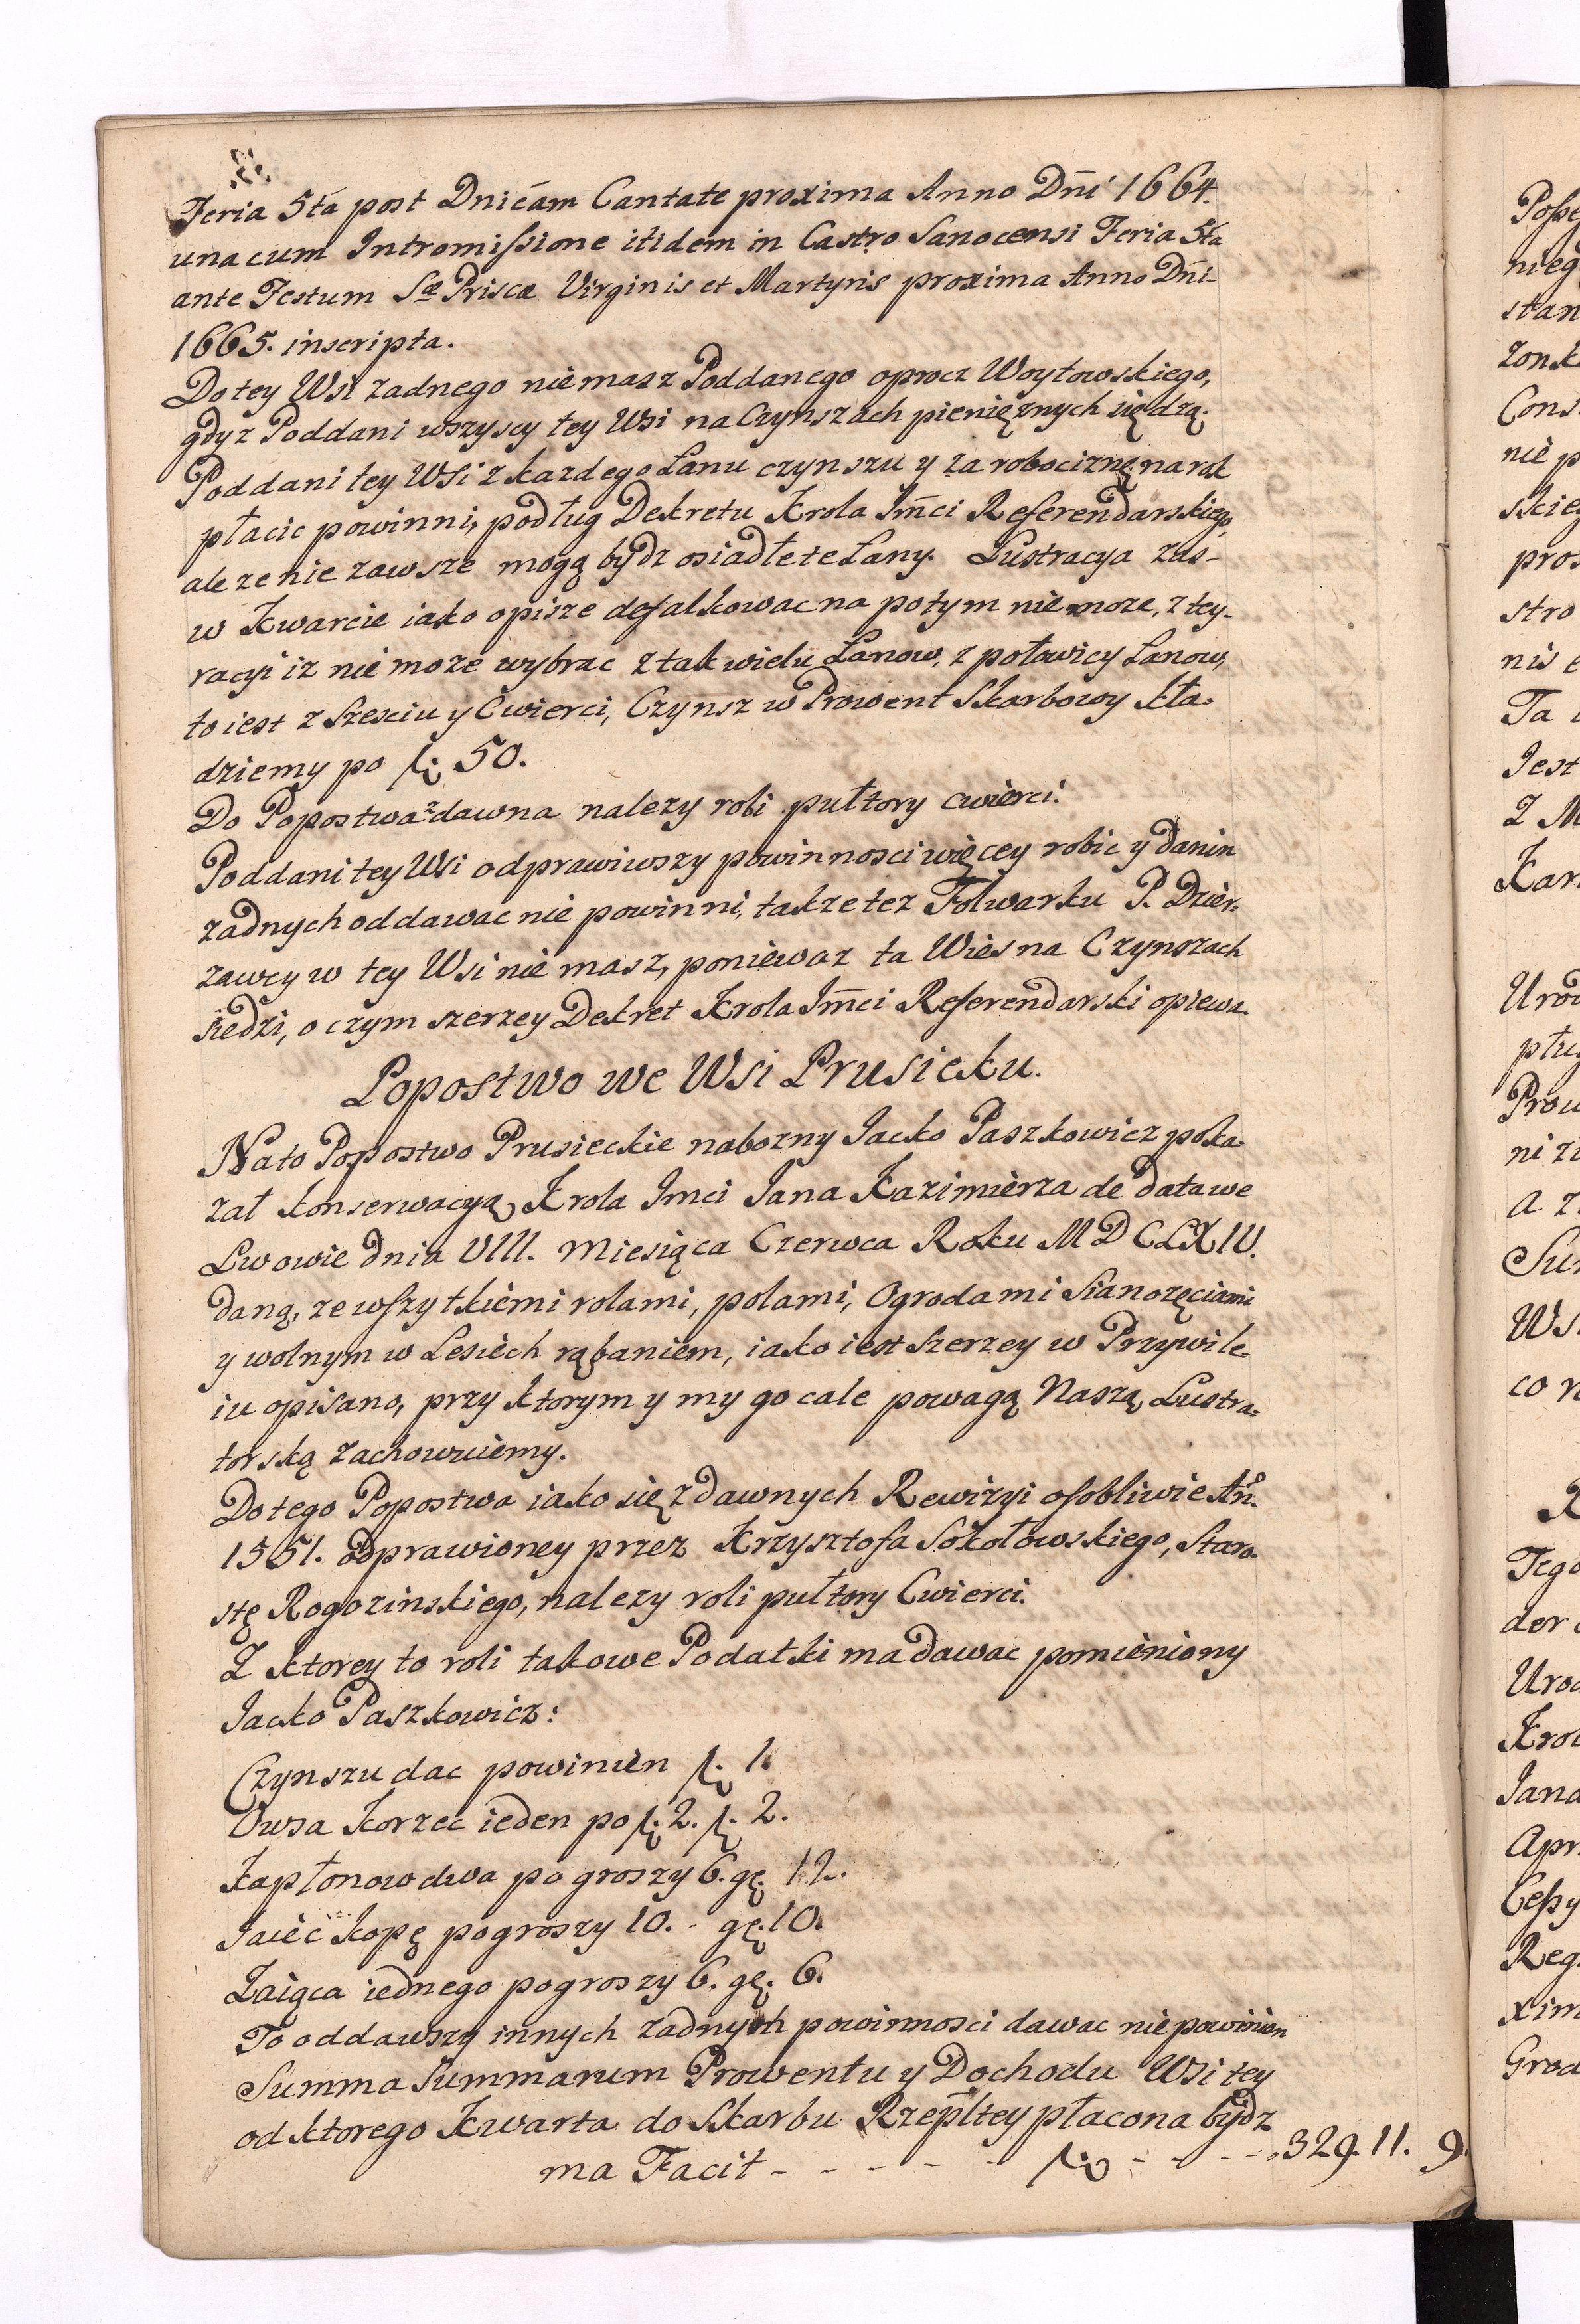 Feria 5tá post Dnicám Cantate proxima Anno Dñi 1664.
una cum Intromissione itidem in Castro Sanocensi Feria 5ta
ante Festum Sæ Priscæ Virginis et Martyris proxima Anno Dñi-
1665. inscripta.
Do tey Wsi zadnego nie masz Poddanego oprocz Woytowskiego,
gdyz Poddani wszyscy tey Wsi na Czynszach pieniężnych siędzą.
Poddani tey Wsi z kazdego Łanu czynszu y za robociznę na rok
płacic powinni, podług Dekretu Krola Jm̃ci Referendarskiego,
ale ze nie zawsze mogą bydz osiadłe te Łany. Lustracya zas-
w Kwarcie iako opisze defalkowac na potym nie moze, z tey-
racyi iz nie moze wybrac z tak wielu Łanow, z połowicy Łanow,
to iest z Szesciu y Cwierci, Czynsz w Prowent Skarbowy kła-
dziemy po f. 50.
Do Popostwa z dawna nalezy roli pułtory cwierci.
Poddani tey Wsi odprawiwszy powinnosci więcey robic y danin
zadnych oddawac nie powinni, takze tez Folwarku P. Dzier-
zawcy w tey Wsi nie masz, poniewaz ta Wies na Czynszach
siedzi, o czym szerzey Dekret Krola Jm̃ci Referendarski opiewa.
Popostwo we Wsi Prusieku.
Na to Popostwo Prusieckie nabozny Jacko Paszkowicz poka-
zał konserwacyą Krola Jmci Jana Kazimierza de data we
Lwowie dnia VIII. Miesiąca Czerwca Roku MDCLXIV.
daną, ze wszytkiemi rolami, polami, Ogrodami Sianozęciami
y wolnym w Lesiech rąbaniem, iako iest szerzey w Przywile-
iu opisano, przy ktorym y my go cale powagą Naszą Lustra-
torską zachowuiemy.
Do tego Popostwa iako się z dawnych Rewizyi osobliwie Añ.
1551. odprawioney przez Krzysztofa Sokołowskiego, Staro-
stę Rogozinskiego, nalezy roli pułtory Cwierci.
Z ktorey to roli takowe Podatki ma dawac pomieniony
Jacko Paszkowicz:
Czynszu dac powinien f. 1.
Owsa Korzec ieden po f. 2. f. 2.
Kapłonow dwa po groszy 6. gę. 12.
Jaiec kopę po groszy 10. - gę. 10.
Zaiąca iednego po groszy 6. gę. 6.
To oddawszy innych zadnych powinnosci dawac nie powinien
Summa Summarum Prowentu y Dochodu Wsi tey
od ktorego Kwarta do Skarbu Rzepltey płacona bydz
ma Facit - - - - - f. - - - - 329. 11. 9.